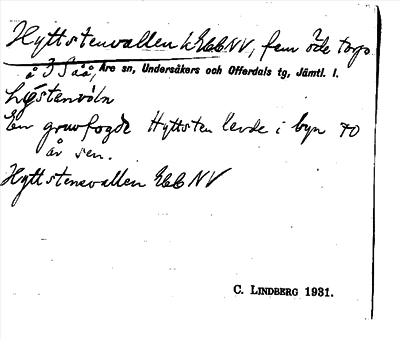 Hyttstensvallen h. Ebl NV, fem öde torp
å 3 Såå, Åre sn, Undersåkers och Offerdals tg, Jämtl. l.
En gruvfogde Hyttsten levde i byn 70
år sen.
Hyttstensvallen Ebl NV
C. LINDBERG 1931.